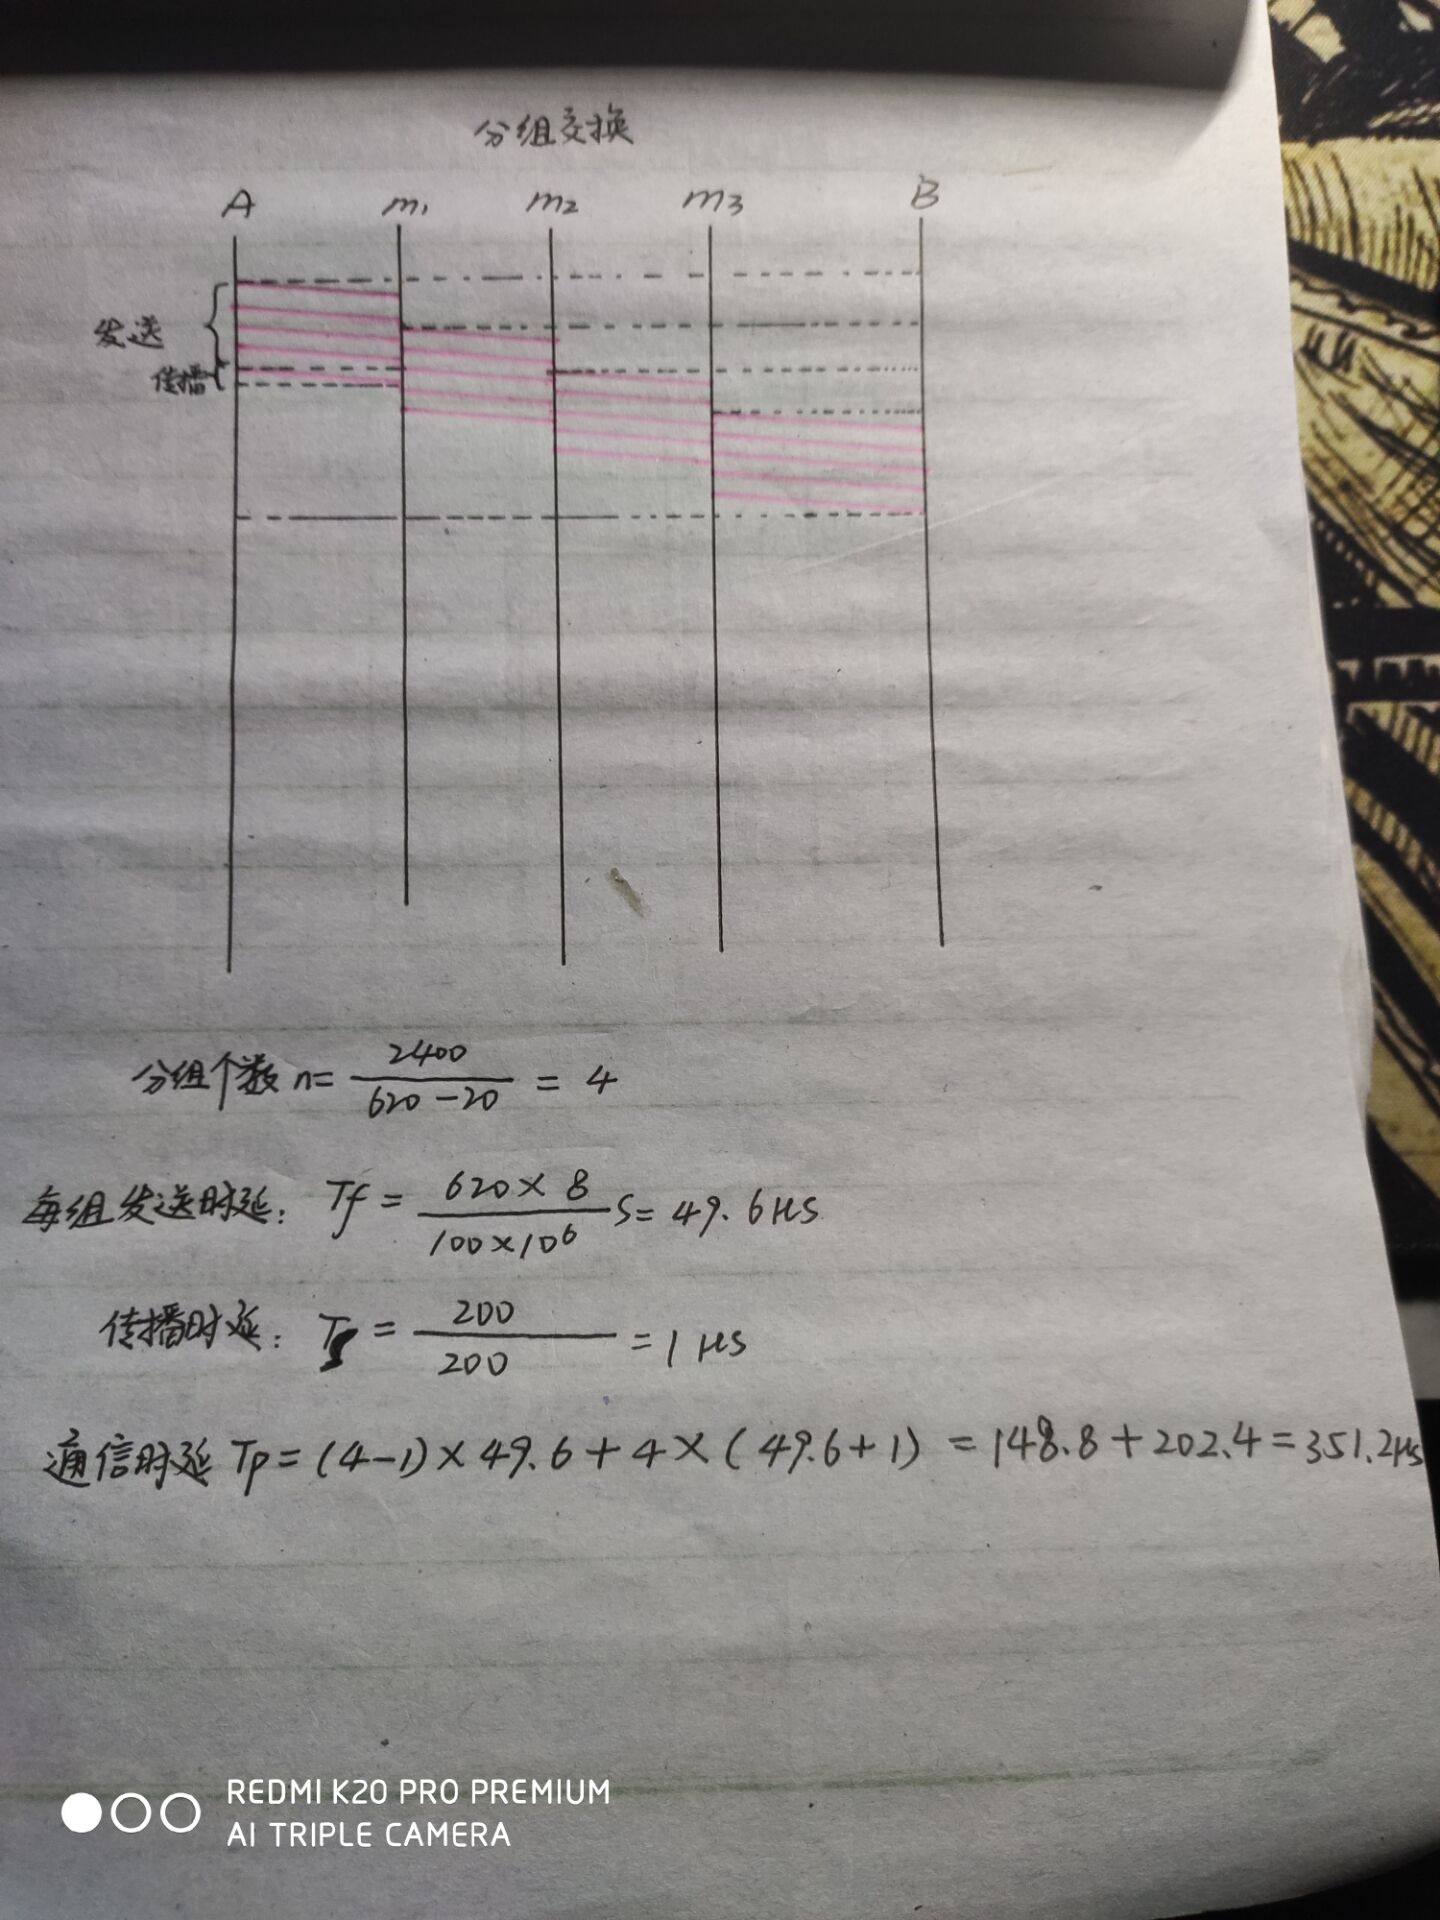 分组交换
A m₁ m₂ m₃ B
发送
传播
分组个数 n = 2400 / (620 - 20) = 4
每组发送时延: Tf = (620 × 8) / (100 × 10⁶) s = 49.6 μs
传播时延: T = 200 / 200 = 1 μs
通信时延 Tp = (4-1) × 49.6 + 4 × (49.6 + 1) = 148.8 + 202.4 = 351.2 μs
REDMI K20 PRO PREMIUM
AI TRIPLE CAMERA